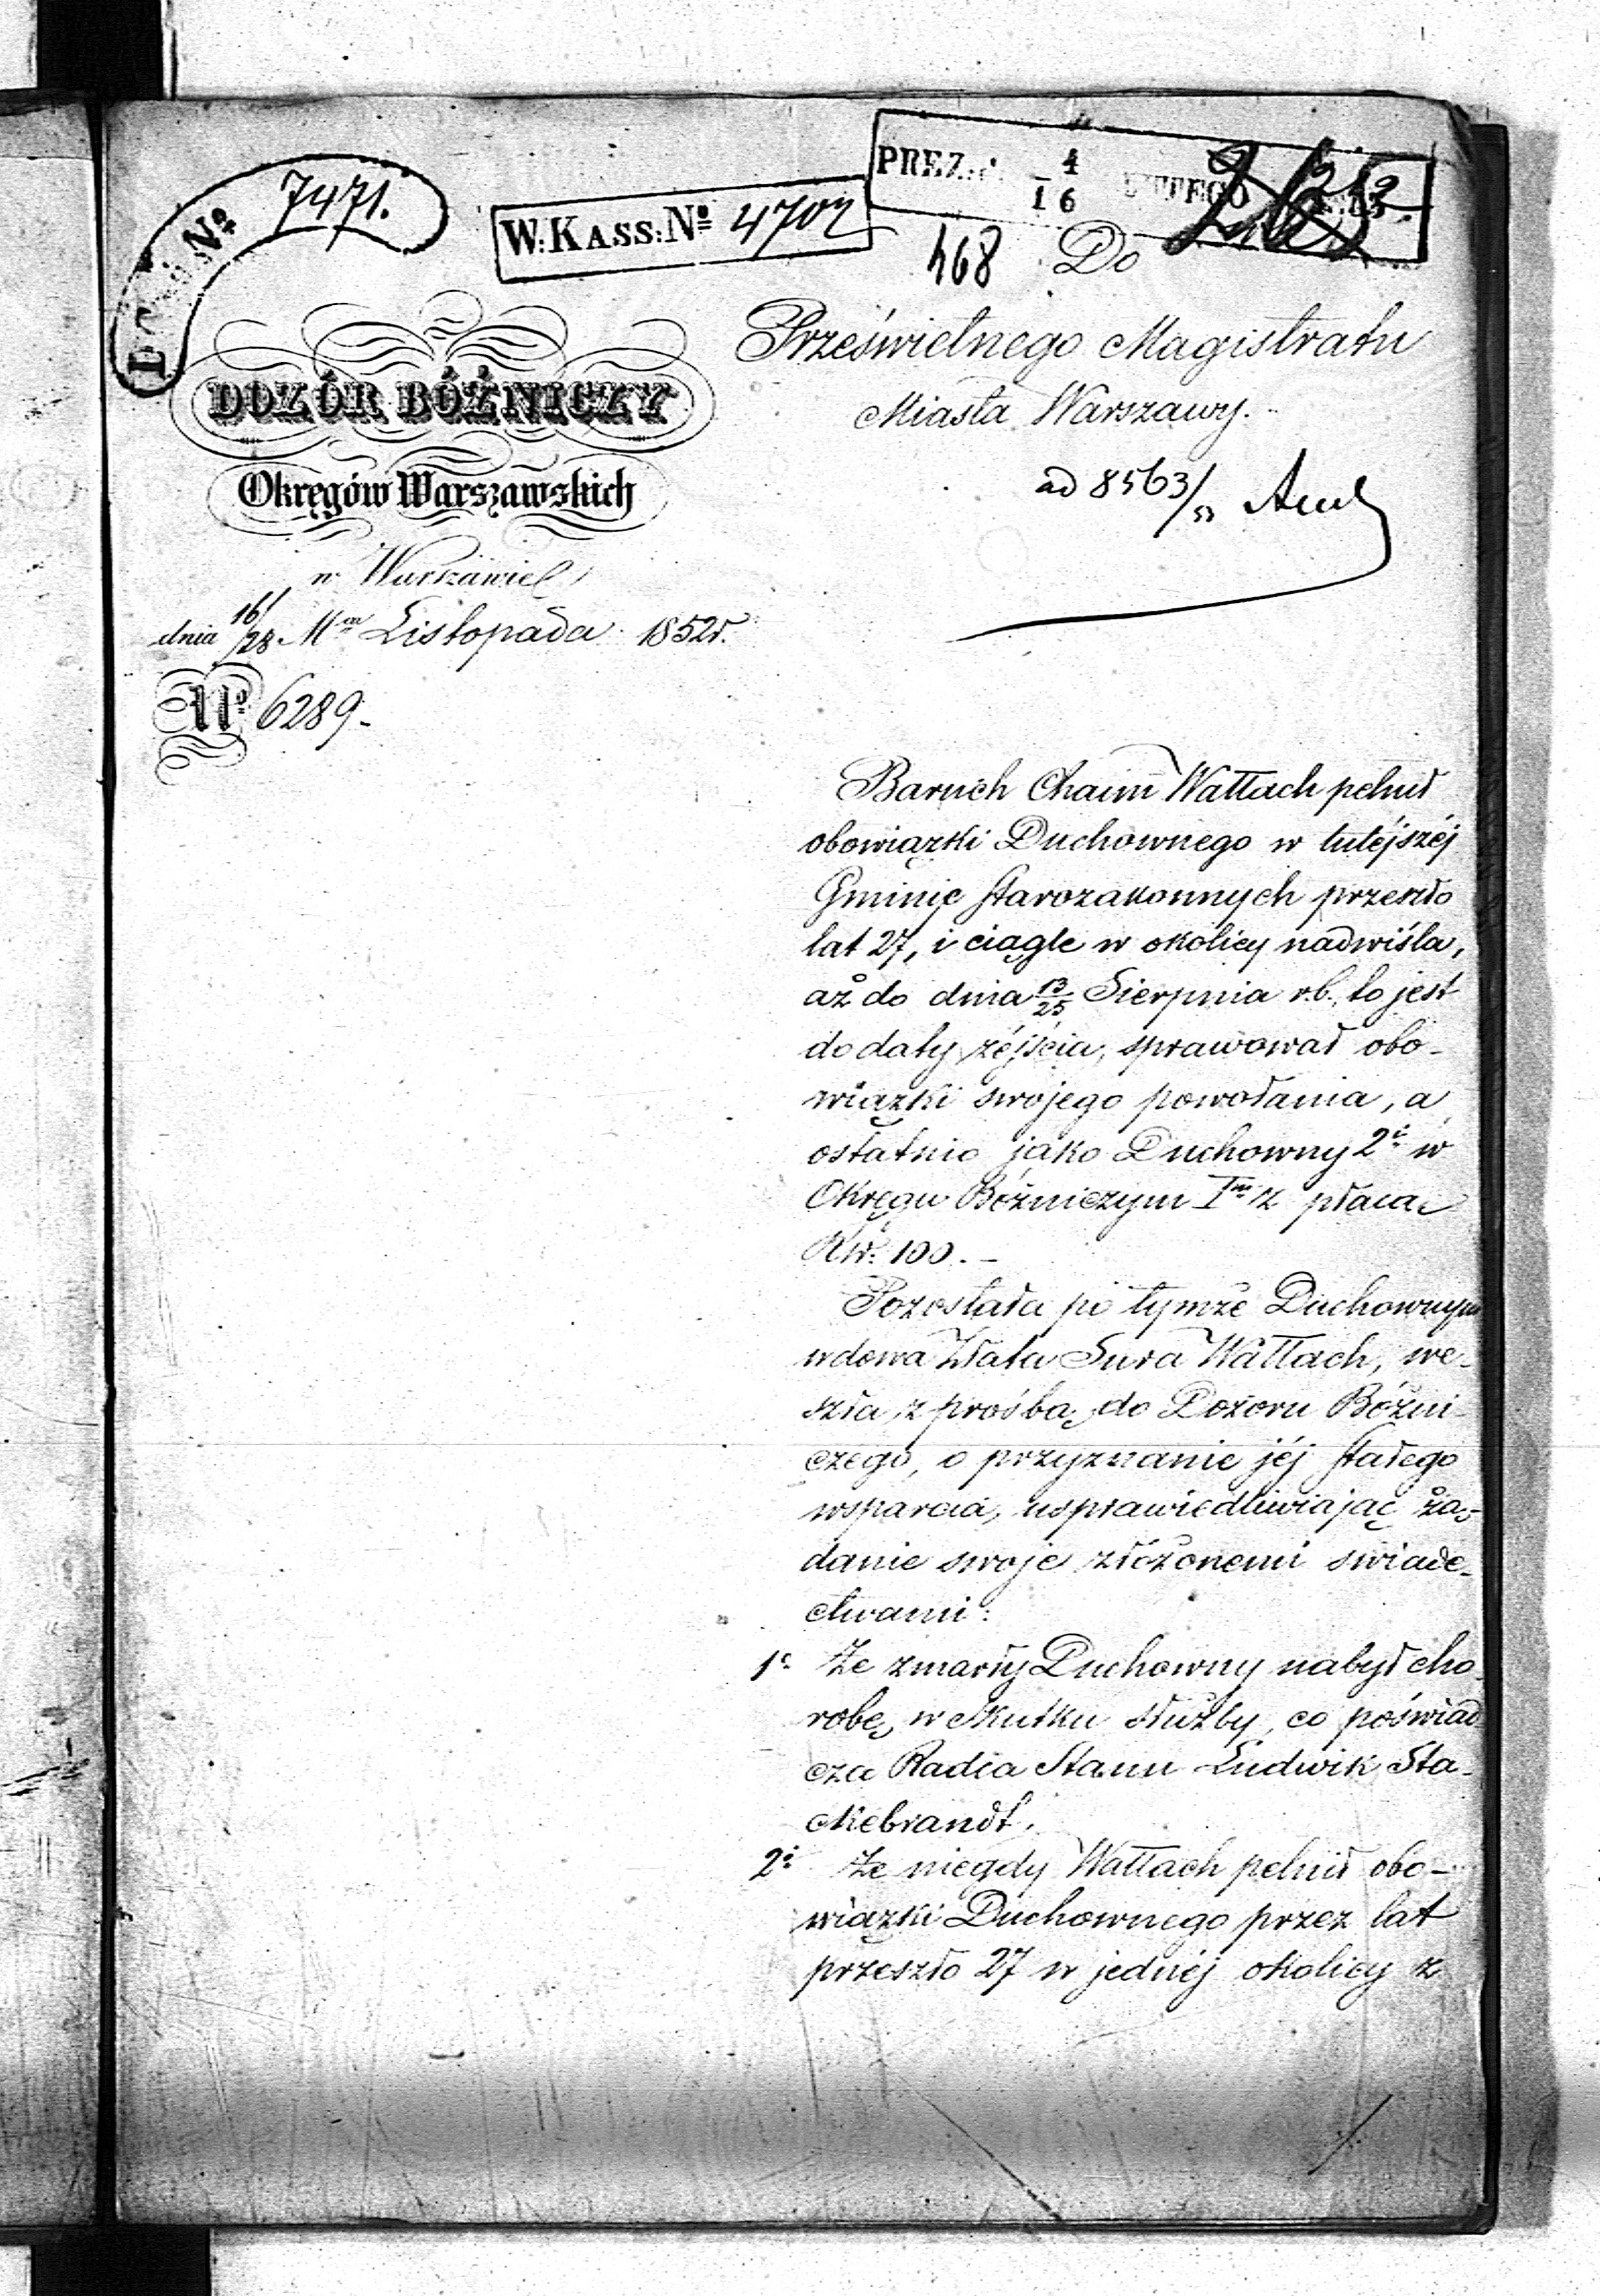 7471.
W: KASS: Nº 4702
PREZ.: 4
16
468 Do
Prześwietnego Magistratu
Miasta Warszawy.
ad 8563/53
DOZÓR BÓŹNICZY
Okręgów Warszawskich
w Warszawie
dnia 16/28 Mca Listopada 1852 r.
Nº 6289.
Baruch Chaim Wallach pełnił
obowiązki Duchownego w tutéjszéj
Gminie Starozakonnych przeszło
lat 27, i ciągle w okolicy nadwiśla,
aż do dnia 13/25 Sierpnia r.b. to jest
do daty zéjścia, sprawował obo-
wiązki swojego powołania, a
ostatnio jako Duchowny 2i w
Okręgu Bóźniczym Im z płacą
Rsr. 100. -
Pozostała po tymże Duchownym
wdowa Złata Sura Wallach, we-
szła z prośbą do Dozoru Bóźni-
czego, o przyznanie jéj stałego
wsparcia, usprawiedliwiając żą-
danie swoje złożonemi świade-
ctwami:
1e Że zmarły Duchowny nabył cho
robę w skutku służby, co poświad
cza Radca Stanu Ludwik Sta-
ckebrandt.
2e Że niegdy Wallach pełnił obo-
wiązki Duchownego przez lat
przeszło 27 w jednéj okolicy z